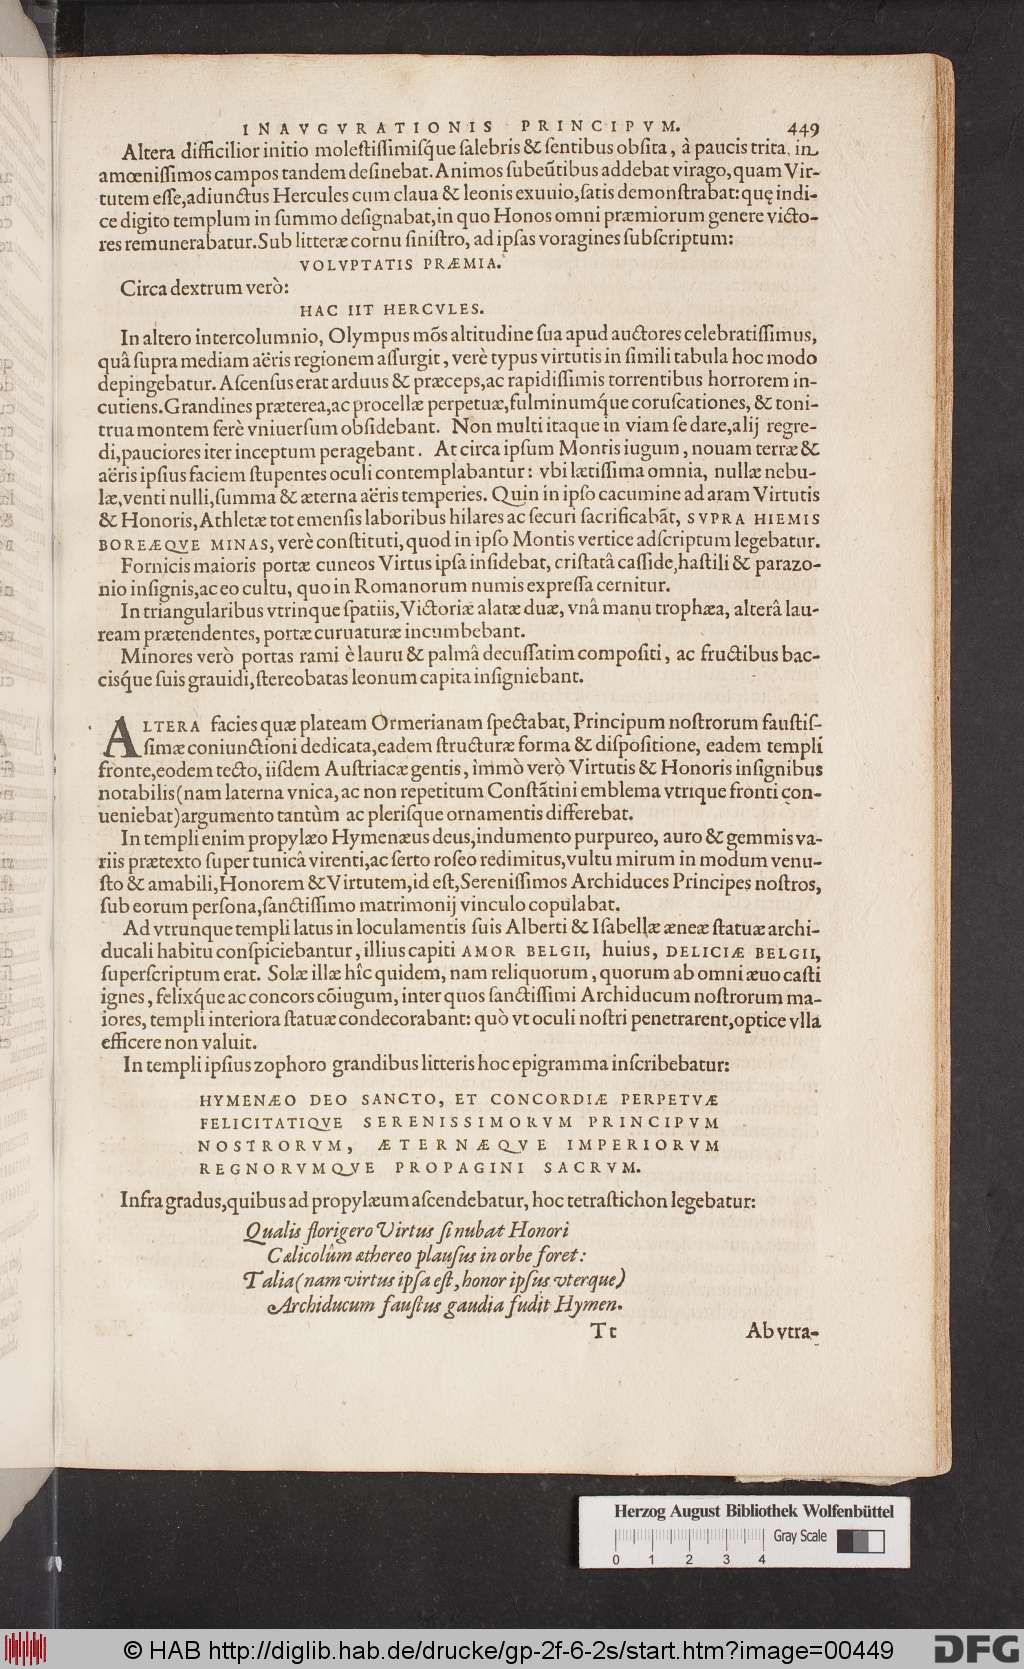 INAVGVRATIONIS PRINCIPVM. 449
Altera difficilior initio molestissimisq́ue salebris & sentibus obsita, à paucis trita, in
amœnissimos campos tandem desinebat. Animos subeũtibus addebat virago, quam Vir-
tutem esse, adiunctus Hercules cum claua & leonis exuuio, satis demonstrabat: quę indi-
ce digito templum in summo designabat, in quo Honos omni præmiorum genere victo-
res remunerabatur. Sub litteræ cornu sinistro, ad ipsas voragines subscriptum:
VOLVPTATIS PRÆMIA.
Circa dextrum verò:
HAC IIT HERCVLES.
In altero intercolumnio, Olympus mõs altitudine sua apud auctores celebratissimus,
quâ supra mediam aëris regionem assurgit, verè typus virtutis in simili tabula hoc modo
depingebatur. Ascensus erat arduus & præceps, ac rapidissimis torrentibus horrorem in-
cutiens. Grandines præterea, ac procellæ perpetuæ, fulminumq́ue coruscationes, & toni-
trua montem ferè vniuersum obsidebant. Non multi itaque in viam se dare, alij regre-
di, pauciores iter inceptum peragebant. At circa ipsum Montis iugum, nouam terræ &
aëris ipsius faciem stupentes oculi contemplabantur: vbi lætissima omnia, nullæ nebu-
læ, venti nulli, summa & æterna aëris temperies. Quin in ipso cacumine ad aram Virtutis
& Honoris, Athletæ tot emensis laboribus hilares ac securi sacrificabãt, SVPRA HIEMIS
BOREÆQVE MINAS, verè constituti, quod in ipso Montis vertice adscriptum legebatur.
Fornicis maioris portæ cuneos Virtus ipsa insidebat, cristatâ casside, hastili & parazo-
nio insignis, ac eo cultu, quo in Romanorum numis expressa cernitur.
In triangularibus vtrinque spatiis, Victoriæ alatæ duæ, vnâ manu trophæa, alterâ lau-
ream prætendentes, portæ curuaturæ incumbebant.
Minores verò portas rami è lauru & palmâ decussatim compositi, ac fructibus bac-
cisq́ue suis grauidi, stereobatas leonum capita insigniebant.
ALTERA facies quæ plateam Ormerianam spectabat, Principum nostrorum faustis-
simæ coniunctioni dedicata, eadem structuræ forma & dispositione, eadem templi
fronte, eodem tecto, iisdem Austriacæ gentis, immò verò Virtutis & Honoris insignibus
notabilis (nam laterna vnica, ac non repetitum Constãtini emblema vtrique fronti con-
ueniebat) argumento tantùm ac plerisque ornamentis differebat.
In templi enim propylæo Hymenæus deus, indumento purpureo, auro & gemmis va-
riis prætexto super tunicâ virenti, ac serto roseo redimitus, vultu mirum in modum venu-
sto & amabili, Honorem & Virtutem, id est, Serenissimos Archiduces Principes nostros,
sub eorum persona, sanctissimo matrimonij vinculo copulabat.
Ad vtrunque templi latus in loculamentis suis Alberti & Isabellæ æneæ statuæ archi-
ducali habitu conspiciebantur, illius capiti AMOR BELGII, huius, DELICIÆ BELGII,
superscriptum erat. Solæ illæ hîc quidem, nam reliquorum, quorum ab omni æuo casti
ignes, felixq́ue ac concors cõiugum, inter quos sanctissimi Archiducum nostrorum ma-
iores, templi interiora statuæ condecorabant: quò vt oculi nostri penetrarent, optice vlla
efficere non valuit.
In templi ipsius zophoro grandibus litteris hoc epigramma inscribebatur:
HYMENÆO DEO SANCTO, ET CONCORDIÆ PERPETVÆ
FELICITATIQVE SERENISSIMORVM PRINCIPVM
NOSTRORVM, ÆTERNÆQVE IMPERIORVM
REGNORVMQVE PROPAGINI SACRVM.
Infra gradus, quibus ad propylæum ascendebatur, hoc tetrastichon legebatur:
Qualis florigero Virtus si nubat Honori
Cælicolûm æthereo plausus in orbe foret:
Talia (nam virtus ipsa est, honor ipsus vterque)
Archiducum faustus gaudia fudit Hymen.
Tt Ab vtra-
Herzog August Bibliothek Wolfenbüttel
Gray Scale
0 1 2 3 4
© HAB http://diglib.hab.de/drucke/gp-2f-6-2s/start.htm?image=00449
DFG